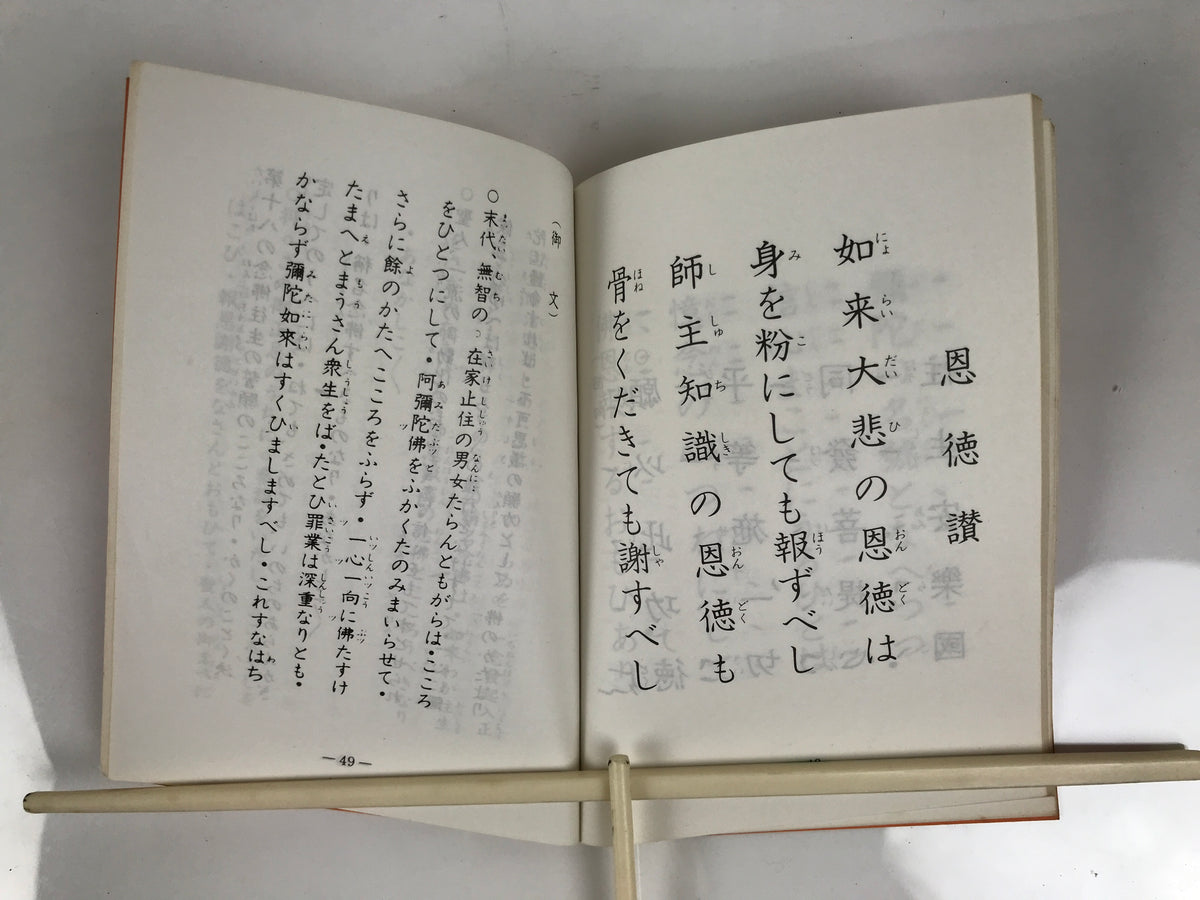 恩徳讃
如来大悲の恩徳は
身を粉にしても報ずべし
師主知識の恩徳も
骨をくだきても謝すべし
(御文)
○末代、無智の・在家止住の男女たらんともがらは・こころ
をひとつにして・阿彌陀佛をふかくたのみまいらせて・
さらに餘のかたへこころをふらず・一心一向に佛たすけ
たまへとまうさん衆生をば・たとひ罪業は深重なりとも・
かならず彌陀如來はすくひましますべし・これすなはち
—49—